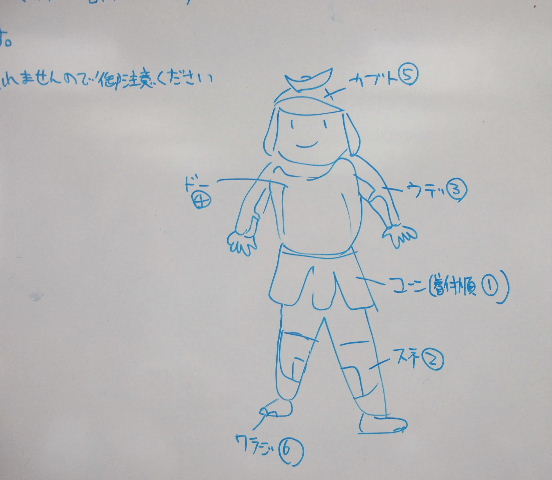 す。
れませんので御注意ください
カブト⑤
ドー
④
ウデッ③
コーン(着付順①)
スネ②
ワラジ⑥